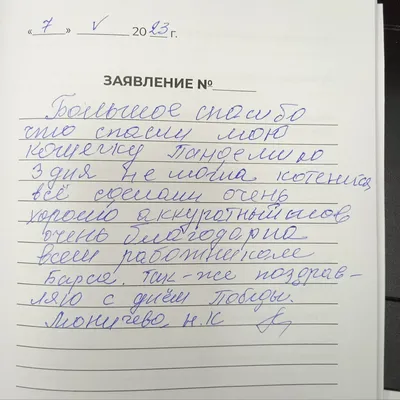 « 7 » V 2023 г.
ЗАЯВЛЕНИЕ №
Большое спасибо
что спасли мою
кошечку Пандемию
3 дня не могла котенится
всё сделали очень
хорошо аккуратный шов
очень благодарна
всем работникам
Барса. Так-же поздрав-
ляю с днём Победы.
Моничева Н.К